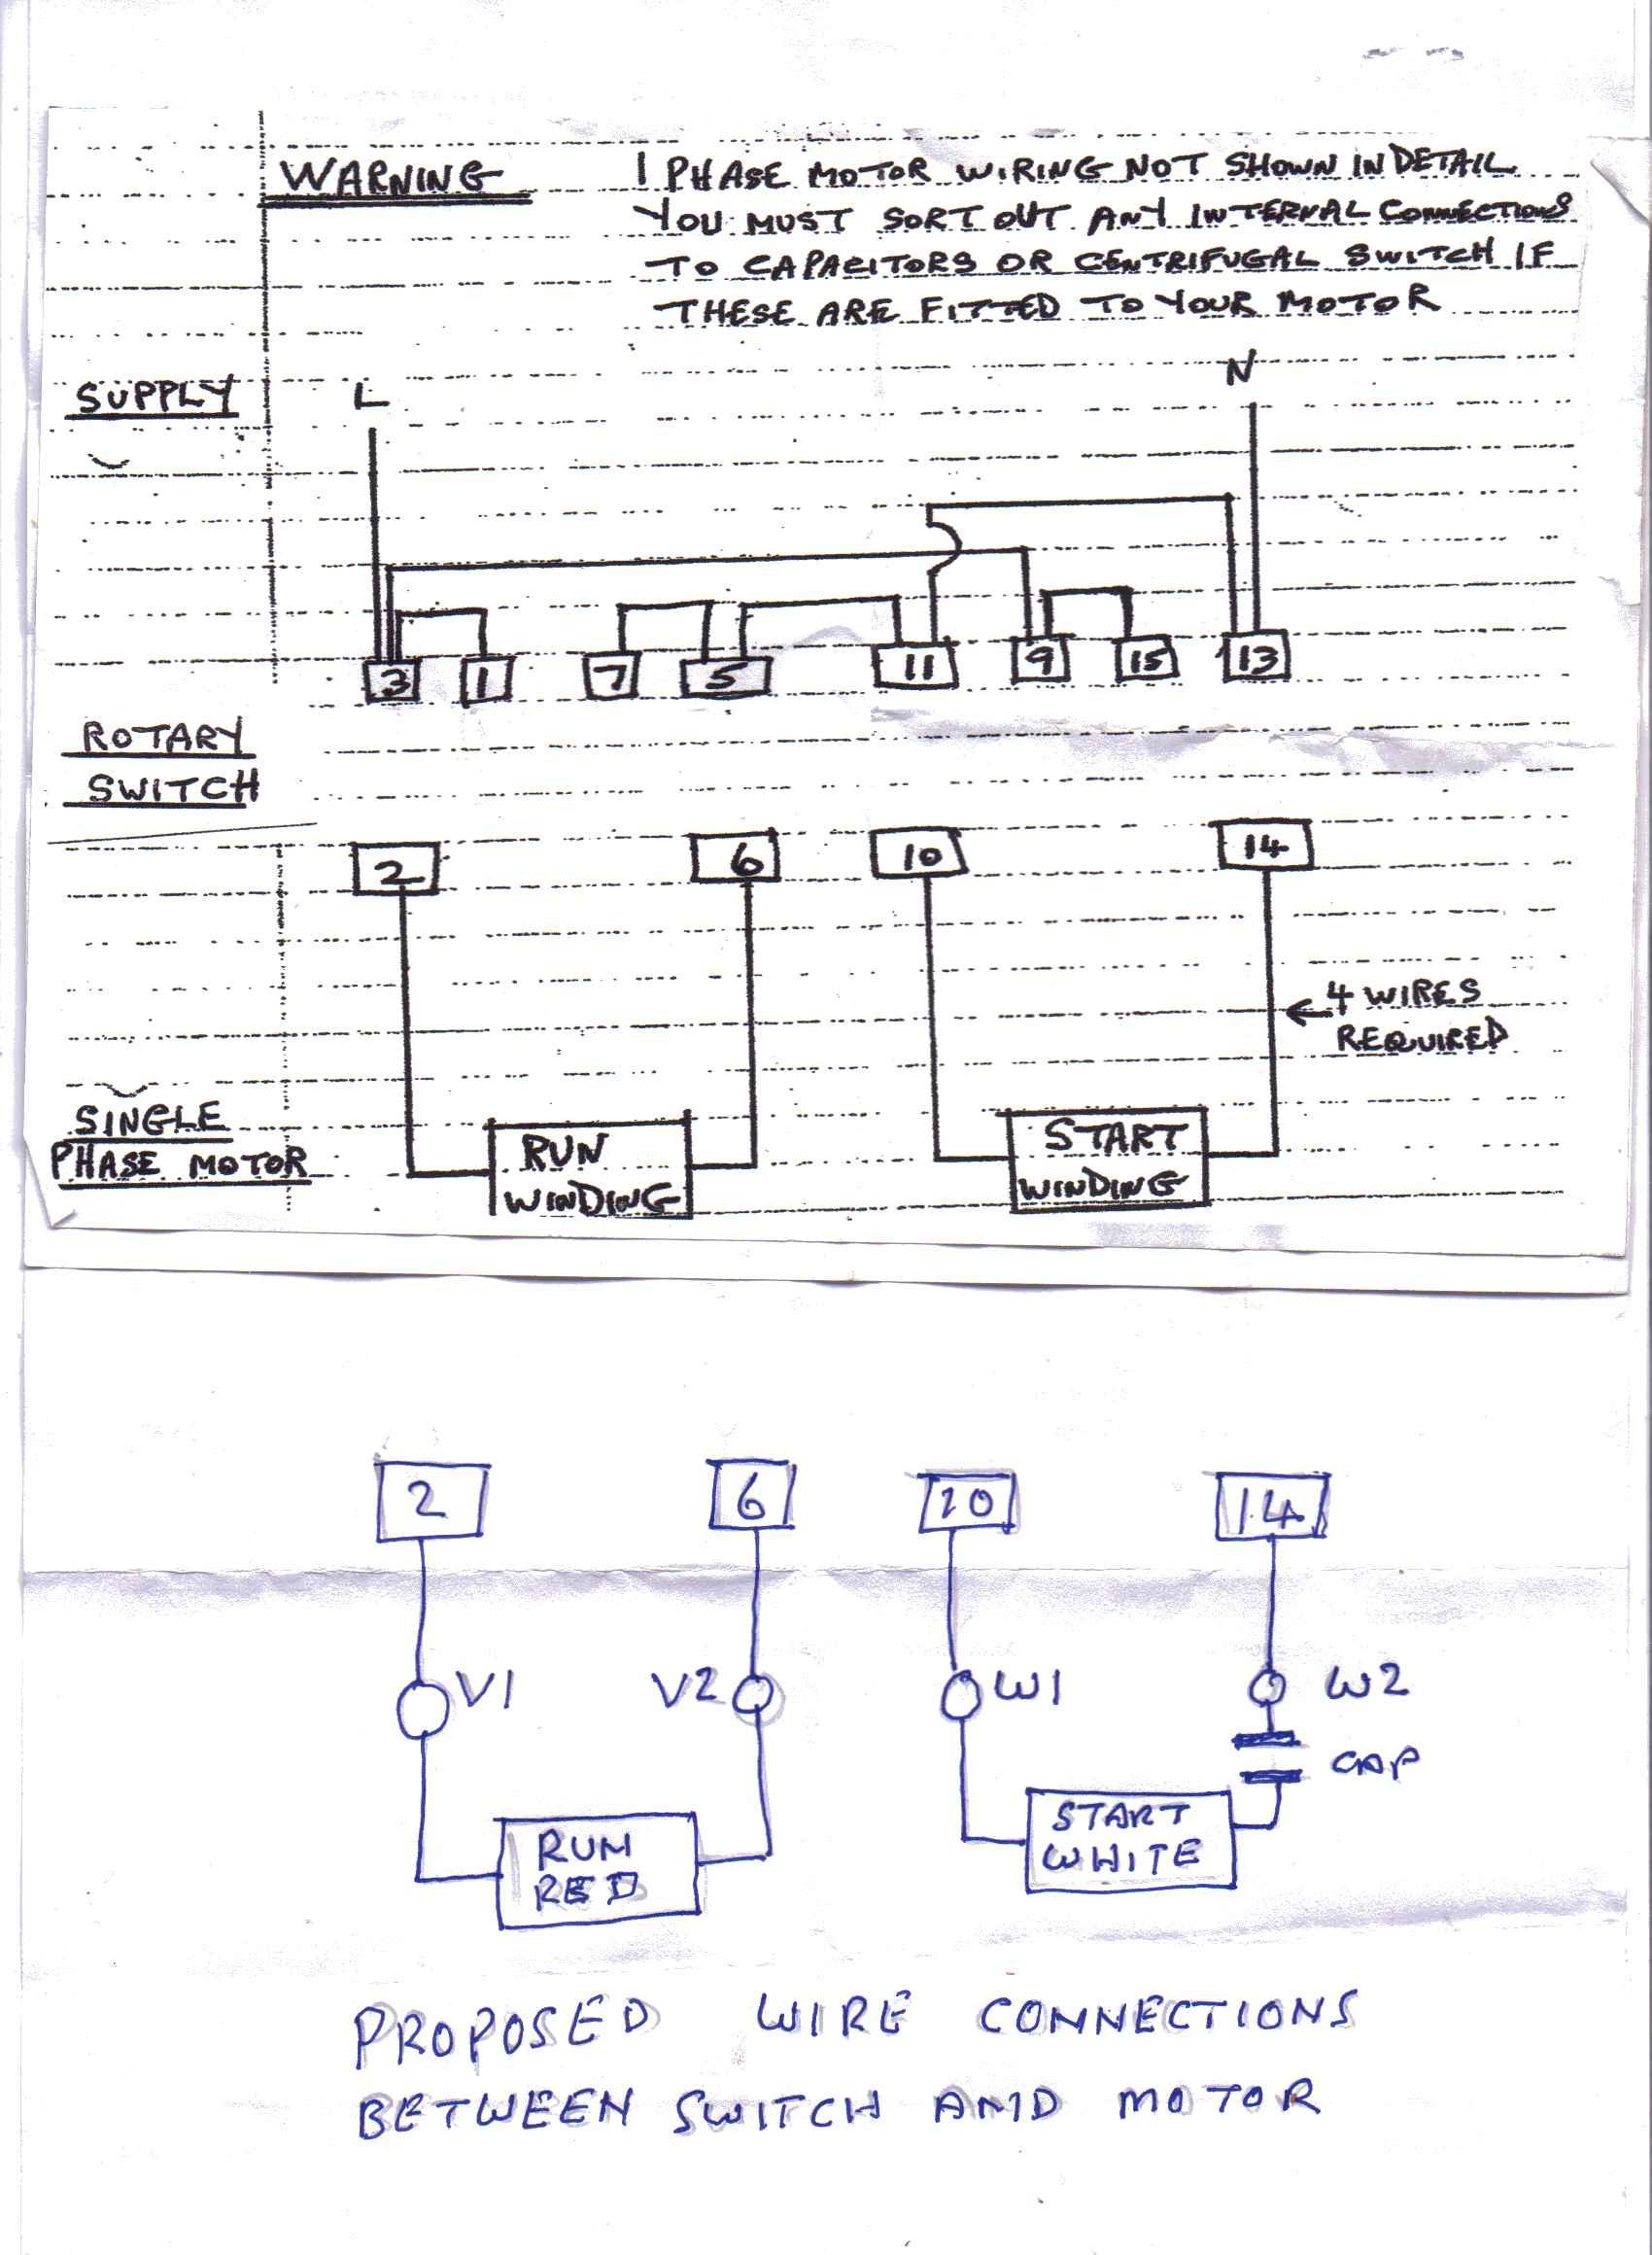 WARNING
1 PHASE MOTOR WIRING NOT SHOWN IN DETAIL
YOU MUST SORT OUT ANY INTERNAL CONNECTIONS
TO CAPACITORS OR CENTRIFUGAL SWITCH IF
THESE ARE FITTED TO YOUR MOTOR
SUPPLY L N
3 1 7 5 11 9 15 13
ROTARY
SWITCH
2 6 10 14
4 WIRES
REQUIRED
SINGLE
PHASE MOTOR
RUN
WINDING
START
WINDING
2 6 10 14
V1 V2 W1 W2
CAP
RUN
RED
START
WHITE
PROPOSED WIRE CONNECTIONS
BETWEEN SWITCH AND MOTOR